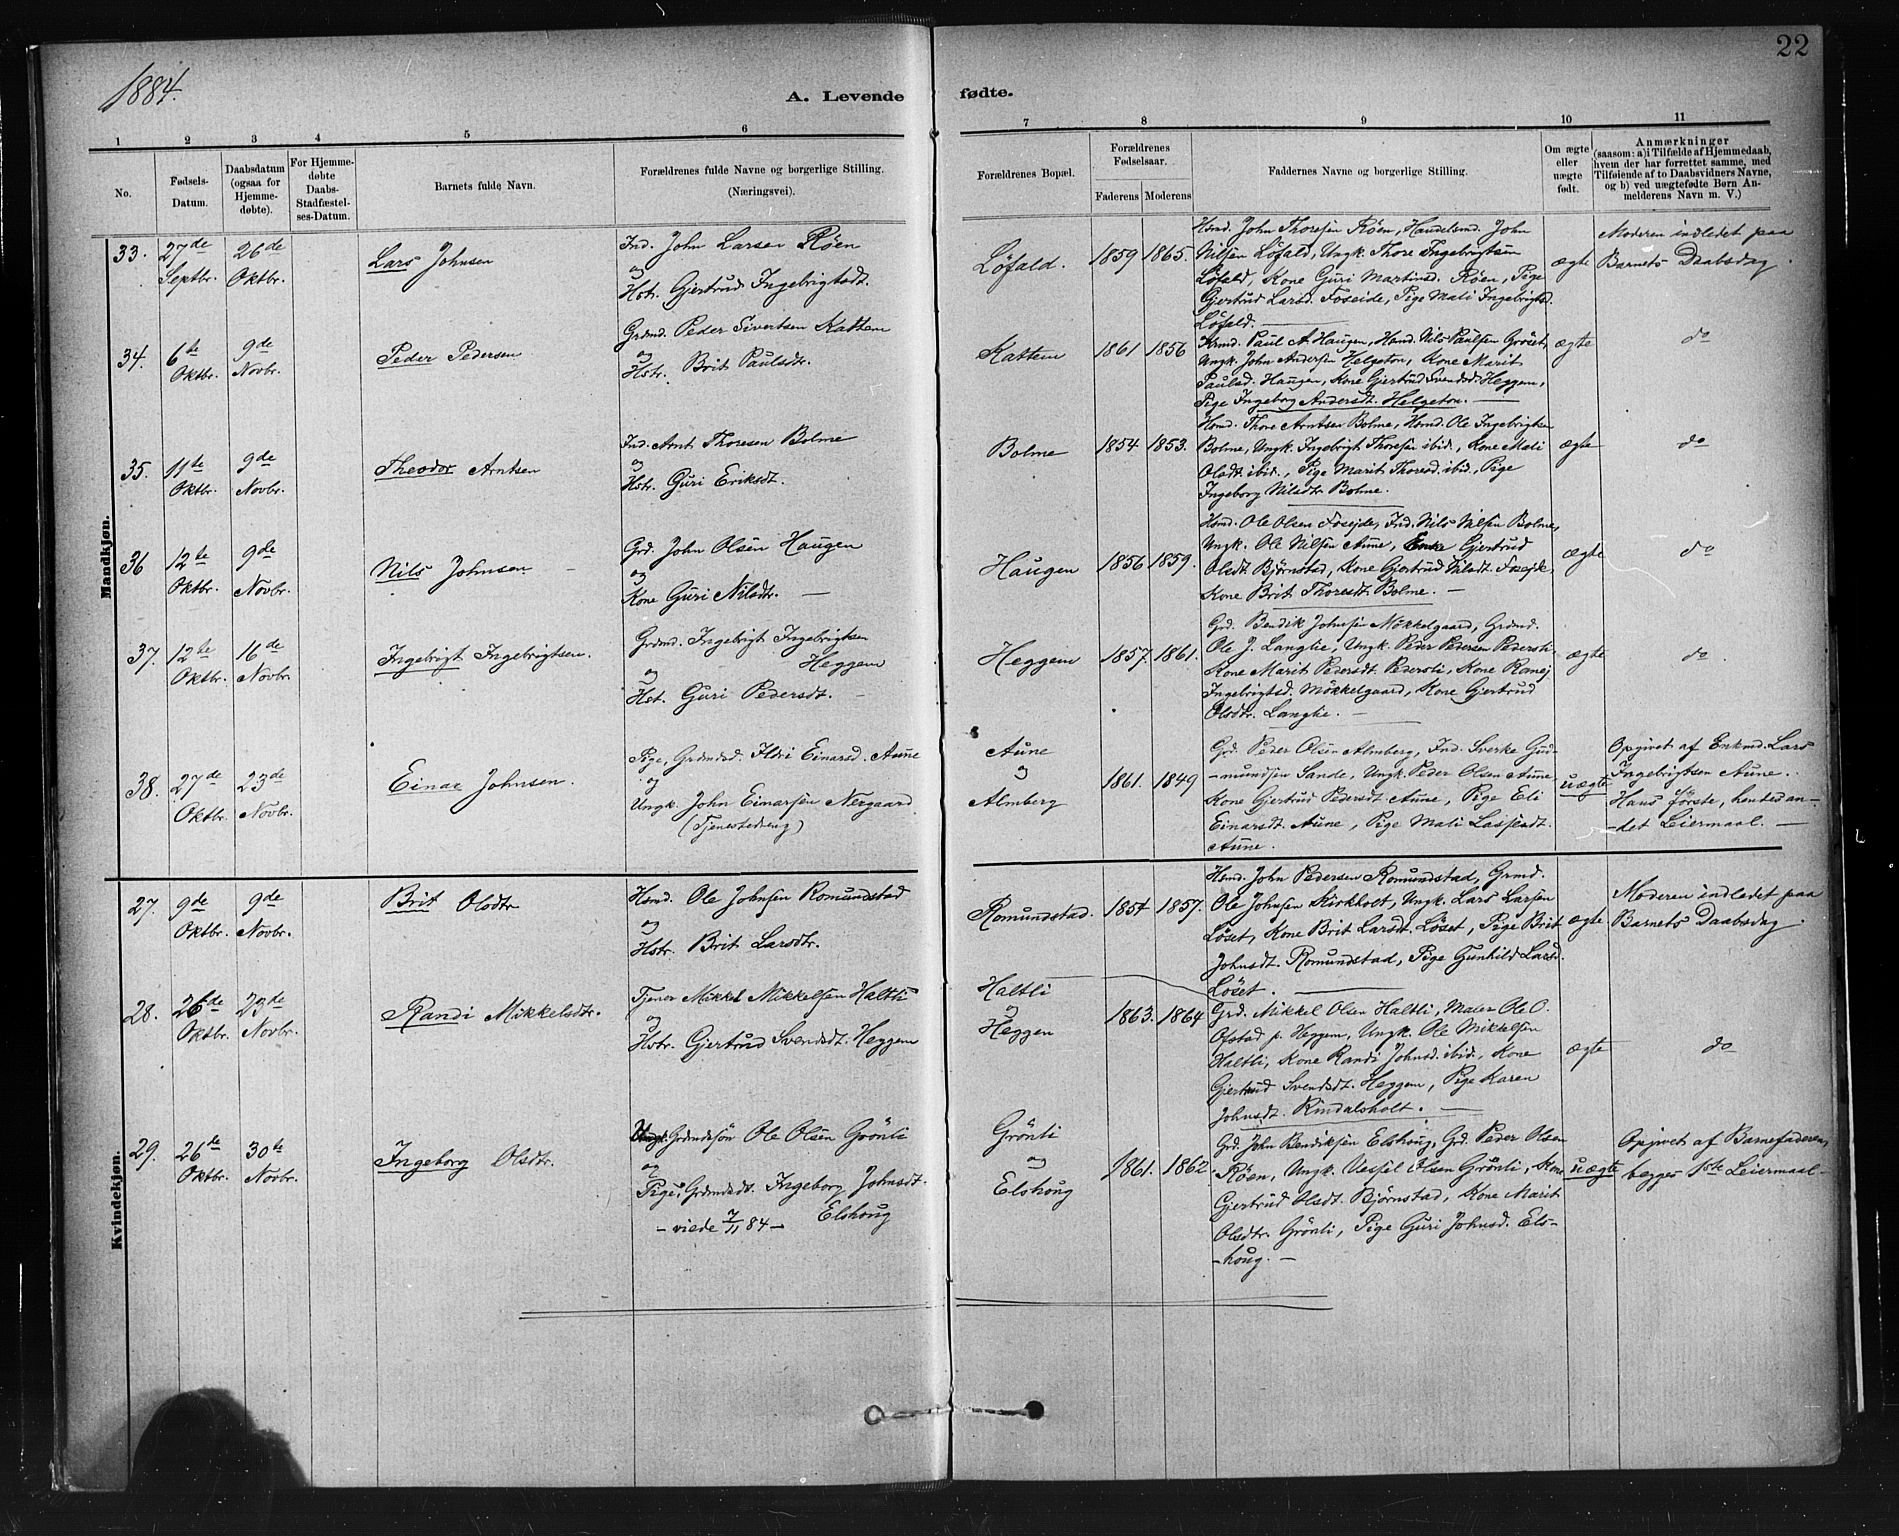 22
1884.
A. Levende fødte.
1 2 3 4 5 6 7 8 9 10 11
No.
Fødsels-
Datum.
Daabsdatum
(ogsaa for
Hjemme-
døbte).
For Hjemme-
døbte
Daabs-
Stadfæstel-
ses-Datum.
Barnets fulde Navn.
Forældrenes fulde Navne og borgerlige Stilling.
(Næringsvei).
Forældrenes Bopæl.
Forældrenes
Fødselsaar.
Faderens Moderens
Faddernes Navne og borgerlige Stilling.
Om ægte
eller
uægte
født.
Anmærkninger
(saasom: a) i Tilfælde af Hjemmedaab,
hvem der har forrettet samme, med
Tilføiende af to Daabsvidners Navne,
og b) ved uægtefødte Børn An-
melderens Navn m. V.)
Mandkjøn.
33.
27de
Septbr.
26de
Oktbr.
Lars Johnsen
Ind. John Larsen Røen
og
Hstr. Gjertrud Ingebrigtsdt.
Löfald.
1859 1865.
Hmd. John Thoresen Röen, Handelsmd. John
Nilsen Löfald, Ungk. Thore Ingebrigtsen
Löfald, Kone Guri Martinsd. Röen, Pige
Gjertrud Larsd. Foseide, Pige Mali Ingebrigtsd.
Löfald.
ægte
Moderen indledet paa
Barnets Daabsdag.
34.
6te
Oktbr.
9de
Novbr.
Peder Pedersen
Grdmd. Peder Sivertsen Kattem
og
Hstr. Brit Paulsdtr.
Kattem
1861 1856
Hmd. Paul A. Haugen, Hmd. Nils Paulsen Gröset,
Ungk. John Andersen Helgeton, Kone Marit
Paulsd. Haugen, Kone Gjertrud Svendsd. Heggem,
Pige Ingeborg Andersdt. Helgeton.
ægte
do
35.
11te
Oktbr.
9de
Novbr.
Theodor Arntsen
Ind. Arnt Thoresen Bolme
og
Hstr. Guri Eriksdt.
Bolme
1854 1853.
Hmd. Thore Arntsen Bolme, Hmd. Ole Ingebrigtsen
Bolme, Ungk. Ingebrigt Thoresen ibid, Kone Mali
Olsdt. ibid., Pige Marit Thoresd. ibid, Pige
Ingeborg Nilsdtr Bolme.
ægte
do
36
12te
Oktbr.
9de
Novbr.
Nils Johnsen
Grd. John Olsen Haugen
og
Kone Guri Nilsdtr.
Haugen
1856 1859.
Hmd. Ole Olsen Fosejde, Ind. Nils Nilsen Bolme,
Ungk. Ole Nilsen Aune, Enke Gjertrud
Olsdt. Björnstad, Kone Gjertrud Nilsdt. Fosejde,
Kone Brit Thoresdt. Bolme.
ægte
do
37.
12te
Oktbr.
16de
Novbr.
Ingebrigt Ingebrigtsen.
Grdmd. Ingebrigt Ingebrigtsen
Heggem
og
Hst. Guri Pedersdt.
Heggem
1857. 1861.
Grd. Bendik Johnsen Mökkelgaard, Grdmd.
Ole J. Langlie, Ungk. Peder Pedersen Pedersli
Kone Marit Pedersdt. Pedersli, Kone Ranej
Ingebrigtsd. Mökkelgaard, Kone Gjertrud
Olsdtr. Langlie.
ægte
do
38.
27de
Oktbr.
23de
Novbr.
Einar Johnsen.
Pige, Grdmdsd. Ildri Einarsd. Aune
og
Ungk. John Einarsen Nergaard
(Tjenestedreng)
Aune
og
Almberg
1861. 1849
Grd. Peder Olsen Almberg, Ind. Sverke Gud-
mundsen Sande, Ungk. Peder Olsen Aune
Kone Gjertrud Pedersdt. Aune, Pige Eli
Einarsdt. Aune, Pige Mali Larsdt.
Aune.
uægte
Opgivet af Enkmd. Lars
Ingebrigtsen Aune.
Hans förste, hendes an-
det Leiermaal.
Kvindekjøn.
27.
9de
Oktbr.
9de
Novbr.
Brit Olsdtr
Hmd. Ole Johnsen Romundstad
og
Hstr. Brit Larsdtr.
Romundstad.
1854 1857.
Hmd. John Pedersen Romundstad, Grmd.
Ole Johnsen Kirkholt, Ungk. Lars Larsen
Löset, Kone Brit Larsdt. Löset, Pige Brit
Johnsdt. Romundstad, Pige Gunhild Larsd.
Löset.
ægte
Moderen indledet paa
Barnets Daabsdag.
28.
26de
Oktbr.
23de
Novbr.
Randi Mikkelsdtr.
Tjener Mikkel Mikkelsen Haltli
og
Hstr. Gjertrud Svendsdt. Heggem
Haltli
og
Heggen
1863. 1864
Grd. Mikkel Olsen Haltli, Maler Ole O.
Ofstad p. Heggem, Ungk. Ole Mikkelsen
Haltli, Kone Randi Johnsd. ibid., Kone
Gjertrud Svendsdt. Heggem, Pige Karen
Johnsdt. Rindalsholt.
ægte
do
29.
26de
Oktbr.
30te
Novbr.
Ingeborg Olsdtr.
Ungk. Grdmdssön Ole Olsen Grönli
og
Pige, Grdmdsdt. Ingeborg Johnsdt.
- viede 7/11 84 - Elshoug
Grönli
og
Elshoug
1861. 1862.
Grd. John Bendiksen Elshoug, Grd. Peder Olsen
Röen, Ungk. Vessel Olsen Grönli, Kone
Gjertrud Olsdt. Björnstad, Kone Marit
Olsdtr. Grönli, Pige Guri Johnsd. Els-
houg.
uægte
Opgivet af Barnefaderen,
begges 1ste Leiermaal